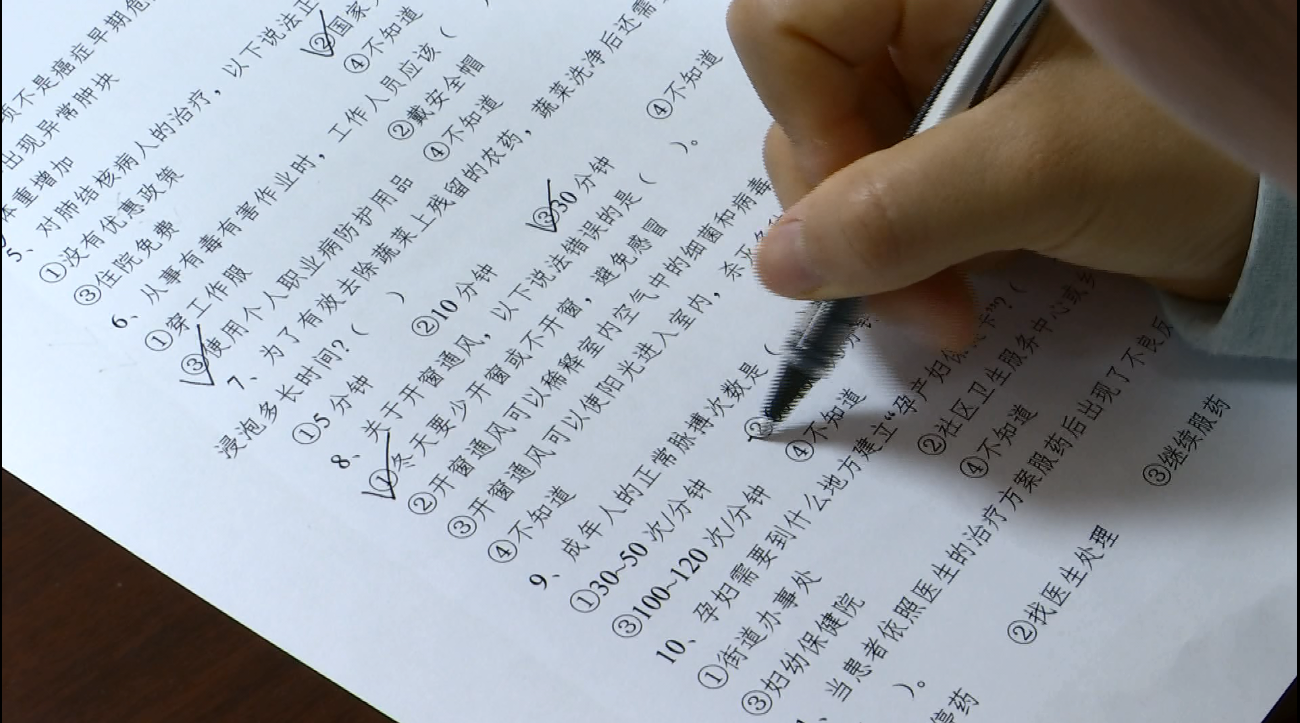 不是癌症早期危
出现异常肿块
体重增加
5、对肺结核病人的治疗，以下说法正
①没有优惠政策 ②国家
③住院免费 ④不知道
6、从事有毒有害作业时，工作人员应该（
①穿工作服 ②戴安全帽
③使用个人职业病防护用品 ④不知道
7、为了有效去除蔬菜上残留的农药，蔬菜洗净后还需
浸泡多长时间？（ ）
①5 分钟 ②10 分钟 ③30 分钟 ④不知道
8、关于开窗通风，以下说法错误的是（ ）。
①冬天要少开窗或不开窗，避免感冒
②开窗通风可以稀释室内空气中的细菌和病毒
③开窗通风可以使阳光进入室内，杀灭
④不知道
9、成年人的正常脉搏次数是（
①30~50 次/分钟 ②
③100~120 次/分钟 ④不知道
10、孕妇需要到什么地方建立“孕产妇保 卡”？（
①街道办事处 ②社区卫生服务中心或乡
③妇幼保健院 ④不知道
、当患者依照医生的治疗方案服药后出现了不良反
）。
停药 ②找医生处理 ③继续服药